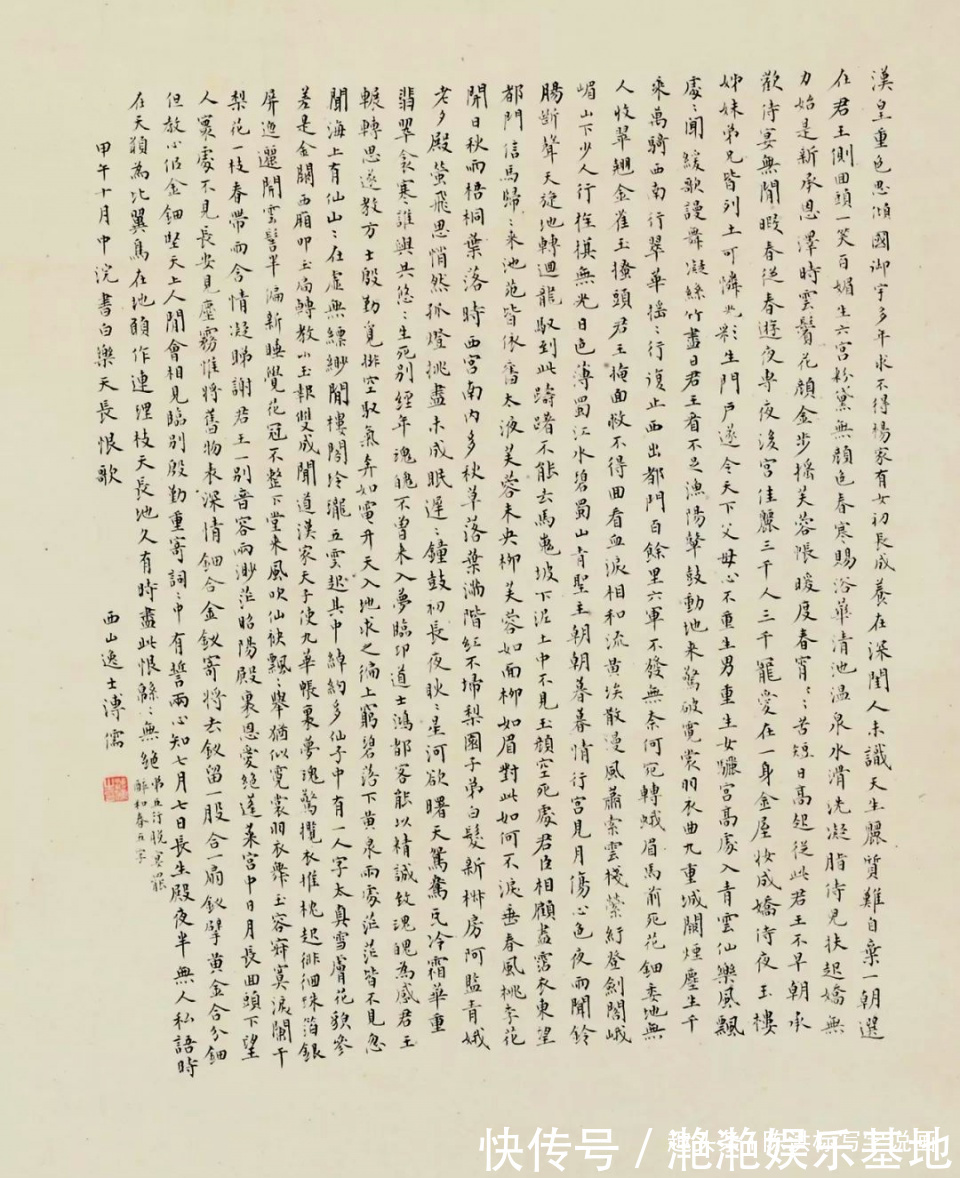 漢皇重色思傾國御宇多年求不得楊家有女初長成養在深閨人未識天生麗質難自棄一朝選
在君王側回頭一笑百媚生六宮粉黛無顏色春寒賜浴華清池溫泉水滑洗凝脂侍兒扶起嬌無
力始是新承恩澤時雲鬢花顏金步搖芙蓉帳暖度春宵〻苦短日高起從此君王不早朝承
歡侍宴無閒暇春從春遊夜專夜後宮佳麗三千人三千寵愛在一身金屋妝成嬌侍夜玉樓
姊妹弟兄皆列土可憐光彩生門戶遂令天下父母心不重生男重生女驪宮高處入青雲仙樂風飄
處〻聞緩歌謾舞凝絲竹盡日君王看不足漁陽鼙鼓動地來驚破霓裳羽衣曲九重城闕煙塵生千
乘萬騎西南行翠華搖〻行復止西出都門百餘里六軍不發無奈何宛轉蛾眉馬前死花鈿委地無
人收翠翹金雀玉搔頭君王掩面救不得回看血淚相和流黃埃散漫風蕭索雲棧縈紆登劍閣峨
嵋山下少人行旌旗無光日色薄蜀江水碧蜀山青聖主朝朝暮暮情行宮見月傷心色夜雨聞鈴
腸斷聲天旋地轉迴龍馭到此躊躇不能去馬嵬坡下泥土中不見玉顏空死處君臣相顧盡霑衣東望
都門信馬歸〻來池苑皆依舊太液芙蓉未央柳芙蓉如面柳如眉對此如何不淚垂春風桃李花
開日秋雨梧桐葉落時西宮南內多秋草落葉滿階紅不埽梨園子弟白髮新椒房阿監青娥
老夕殿螢飛思悄然孤燈挑盡未成眠遲〻鐘鼓初長夜耿〻星河欲曙天鴛鴦瓦冷霜華重
翡翠衾寒誰與共悠〻生死別經年魂魄不曾來入夢臨邛道士鴻都客能以精誠致魂魄為感君王
輾轉思遂教方士殷勤覓排空馭氣奔如電升天入地求之徧上窮碧落下黃泉兩處茫茫皆不見忽
聞海上有仙山〻在虛無縹緲間樓閣玲瓏五雲起其中綽約多仙子中有一人字太真雪膚花貌參
差是金闕西廂叩玉扃轉教小玉報雙成聞道漢家天子使九華帳裏夢魂驚攬衣推枕起徘徊珠箔銀
屏迤邐開雲髻半偏新睡覺花冠不整下堂來風吹仙袂飄〻舉猶似霓裳羽衣舞玉容寂寞淚闌干
梨花一枝春帶雨含情凝睇謝君王一別音容兩渺茫昭陽殿裏恩愛絕蓬萊宮中日月長回頭下望
人寰處不見長安見塵霧惟將舊物表深情鈿合金釵寄將去釵留一股合一扇釵擘黃金合分鈿
但教心似金鈿堅天上人間會相見臨別殷勤重寄詞〻中有誓兩心知七月七日長生殿夜半無人私語時
在天願為比翼鳥在地願作連理枝天長地久有時盡此恨緜〻無絕
第五行脫宴罷
醉和春五字
甲午十月中浣書白樂天長恨歌
西山逸士溥儒
快传号/滟滟娱乐基地